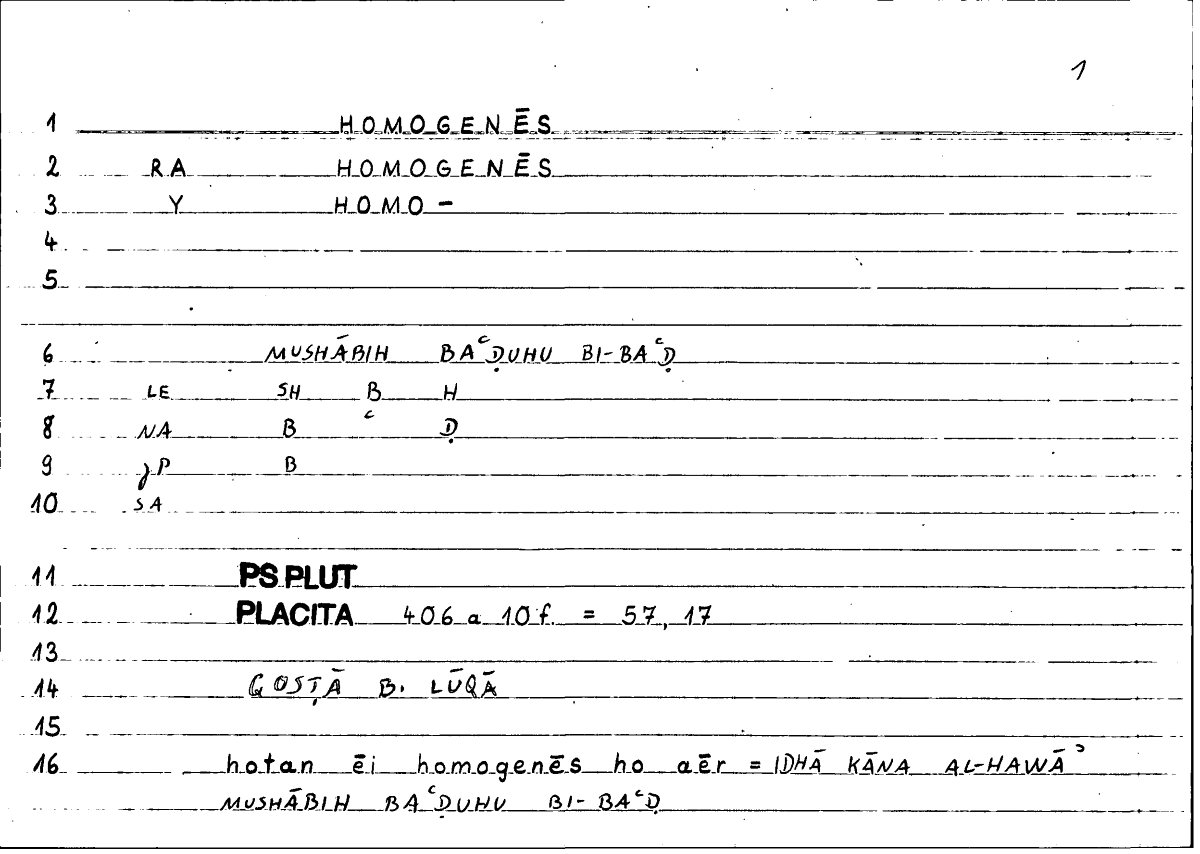 1
1 HOMOGENĒS
2 RA HOMOGENĒS
3 Y HOMO -
4
5
6 MUSHĀBIH BAᶜḌUHU BI-BAᶜḌ
7 LE SH B H
8 NA B ᶜ Ḍ
9 ȷP B
10 SA
11 PS.PLUT
12 PLACITA 406 a 10 f. = 57, 17
13
14 QOSṬĀ B. LŪQĀ
15
16 hotan ēi homogenēs ho aēr = IDHĀ KĀNA AL-HAWĀʾ
MUSHĀBIH BAᶜḌUHU BI-BAᶜḌ